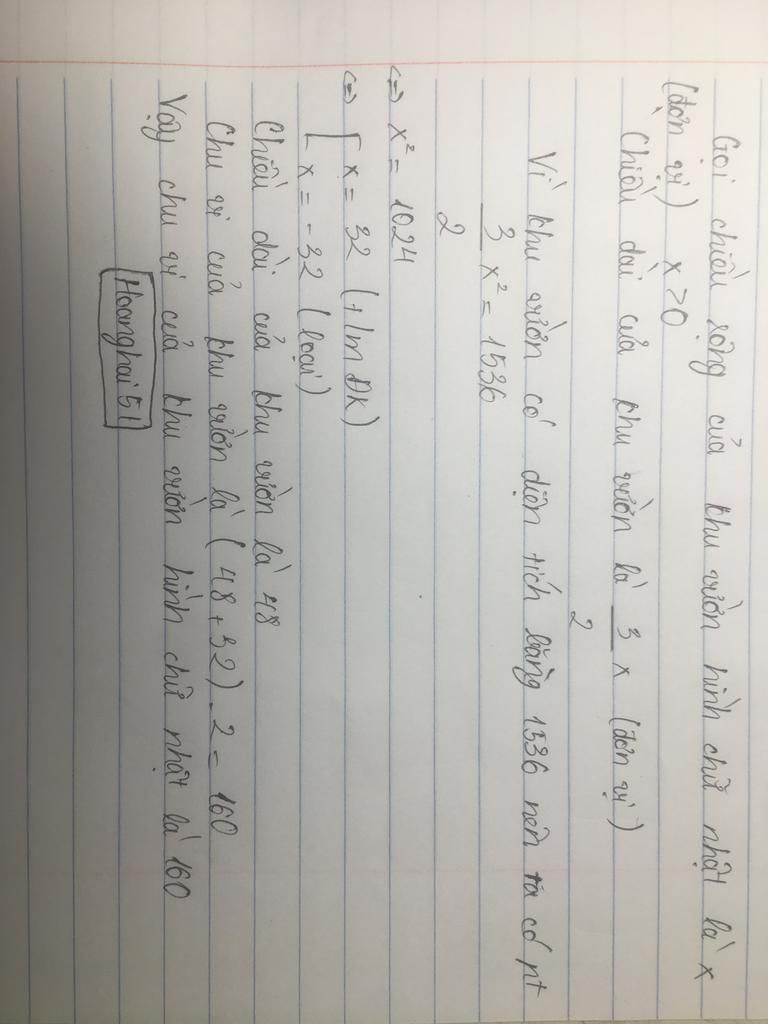 Gọi chiều rộng của khu vườn hình chữ nhật là x
(đơn vị) x>0
Chiều dài của khu vườn là 3/2 x (đơn vị)
Vì khu vườn có diện tích bằng 1536 nên ta có pt
3/2 x² = 1536
<=> x² = 1024
<=> [ x = 32 (t/m ĐK)
x = -32 (loại)
Chiều dài của khu vườn là 48
Chu vi của khu vườn là (48+32).2 = 160
Vậy chu vi của khu vườn hình chữ nhật là 160
Hoanghai51